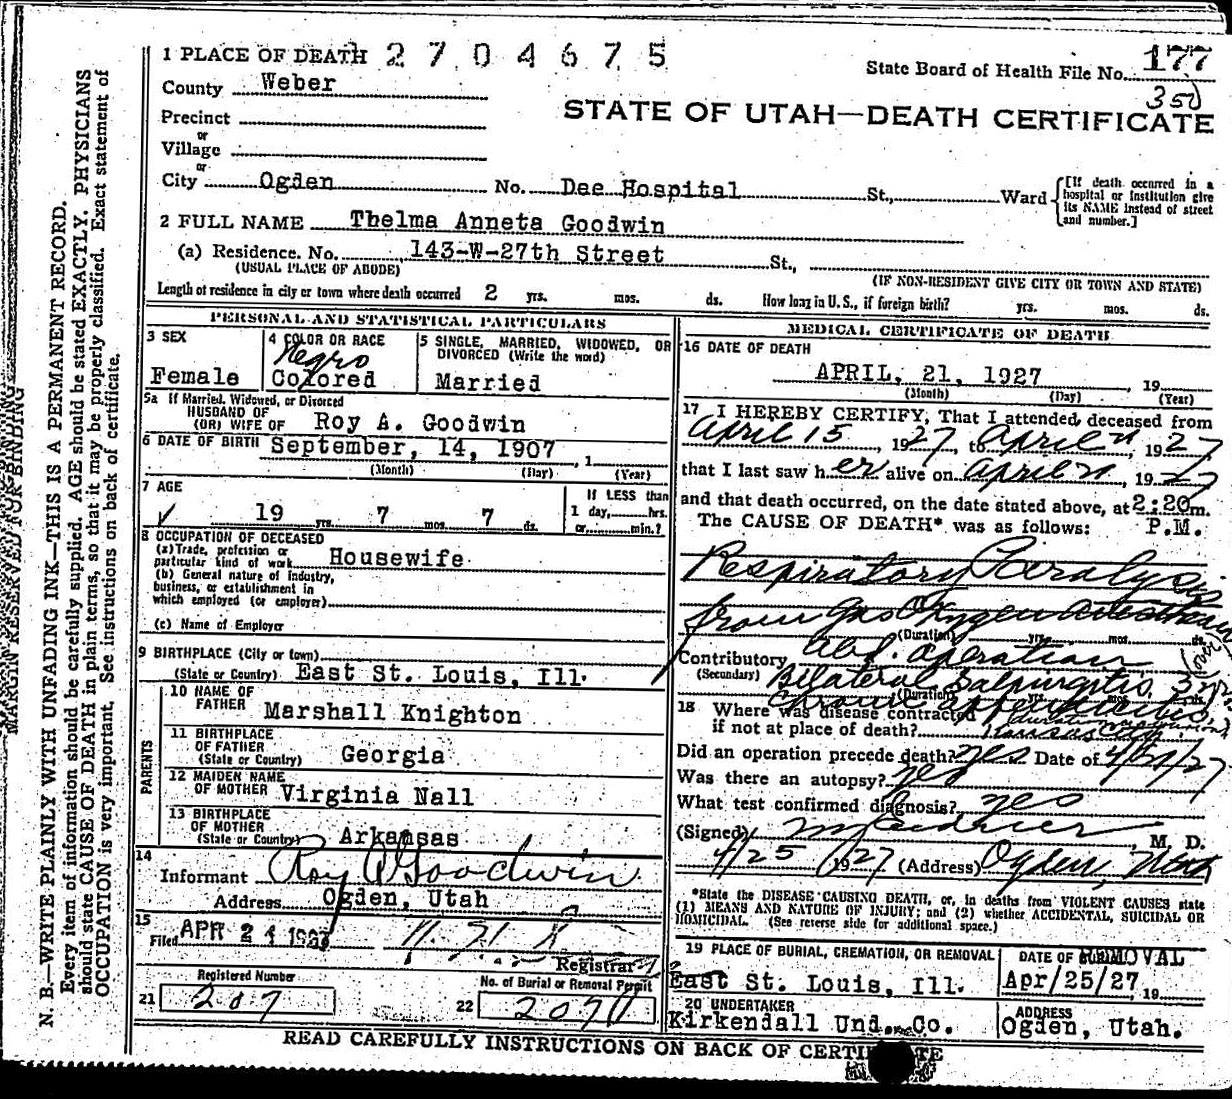 1 PLACE OF DEATH 2704675
State Board of Health File No. 177
350
County Weber
STATE OF UTAH—DEATH CERTIFICATE
Precinct
or
Village
or
City Ogden No. Dee Hospital St., Ward
[If death occurred in a hospital or institution give its NAME instead of street and number.]
2 FULL NAME Thelma Anneta Goodwin
(a) Residence. No. 143-W-27th Street St.,
(USUAL PLACE OF ABODE) (IF NON-RESIDENT GIVE CITY OR TOWN AND STATE)
Length of residence in city or town where death occurred 2 yrs. mos. ds. How long in U. S., if foreign birth? yrs. mos. ds.
PERSONAL AND STATISTICAL PARTICULARS
3 SEX
Female
4 COLOR OR RACE
Negro
Colored
5 SINGLE, MARRIED, WIDOWED, OR DIVORCED (Write the word)
Married
5a If Married, Widowed, or Divorced
HUSBAND OF
(OR) WIFE OF Roy A. Goodwin
6 DATE OF BIRTH September, 14, 1907, 1
(Month) (Day) (Year)
7 AGE
19 yrs. 7 mos. 7 ds.
If LESS than
1 day, hrs.
or min.?
8 OCCUPATION OF DECEASED
(a) Trade, profession or
particular kind of work Housewife
(b) General nature of industry,
business, or establishment in
which employed (or employer)
(c) Name of Employer
9 BIRTHPLACE (City or town)
(State or Country) East St. Louis, Ill.
PARENTS
10 NAME OF
FATHER Marshall Knighton
11 BIRTHPLACE
OF FATHER
(State or Country) Georgia
12 MAIDEN NAME
OF MOTHER Virginia Nall
13 BIRTHPLACE
OF MOTHER
(State or Country) Arkansas
14
Informant Roy A Goodwin
Address Ogden, Utah
15
Filed APR 24 1927
Registrar
Registered Number
21 207
No. of Burial or Removal Permit
22 2070
MEDICAL CERTIFICATE OF DEATH
16 DATE OF DEATH
APRIL, 21, 1927, 19
(Month) (Day) (Year)
17 I HEREBY CERTIFY, That I attended deceased from
April 15, 1927, to April 21, 1927
that I last saw her alive on April 21, 1927
and that death occurred, on the date stated above, at 2:20m.
The CAUSE OF DEATH* was as follows: P.M.
Respiratory Paralysis
from Gas Oxygen
(Duration) yrs. mos. ds.
Contributory Abd. operation (over)
(Secondary) Bilateral Salpingitis, 3 yrs
(Duration) yrs. mos. ds.
Chronic appendicitis,
18 Where was disease contracted
if not at place of death? Kansas City
Did an operation precede death? yes Date of 4/21/27
Was there an autopsy? yes
What test confirmed diagnosis? yes
(Signed) , M. D.
4/25 1927 (Address) Ogden, Utah
*State the DISEASE CAUSING DEATH, or, in deaths from VIOLENT CAUSES state
(1) MEANS AND NATURE OF INJURY; and (2) whether ACCIDENTAL, SUICIDAL OR
HOMICIDAL. (See reverse side for additional space.)
19 PLACE OF BURIAL, CREMATION, OR REMOVAL
East St. Louis, Ill.
DATE OF REMOVAL
Apr/25/27, 19
20 UNDERTAKER
Kirkendall Und. Co.
ADDRESS
Ogden, Utah.
READ CAREFULLY INSTRUCTIONS ON BACK OF CERTIFICATE
MARGIN RESERVED FOR BINDING
N. B.—WRITE PLAINLY WITH UNFADING INK—THIS IS A PERMANENT RECORD.
Every item of information should be carefully supplied. AGE should be stated EXACTLY. PHYSICIANS
should state CAUSE OF DEATH in plain terms, so that it may be properly classified. Exact statement of
OCCUPATION is very important. See instructions on back of certificate.